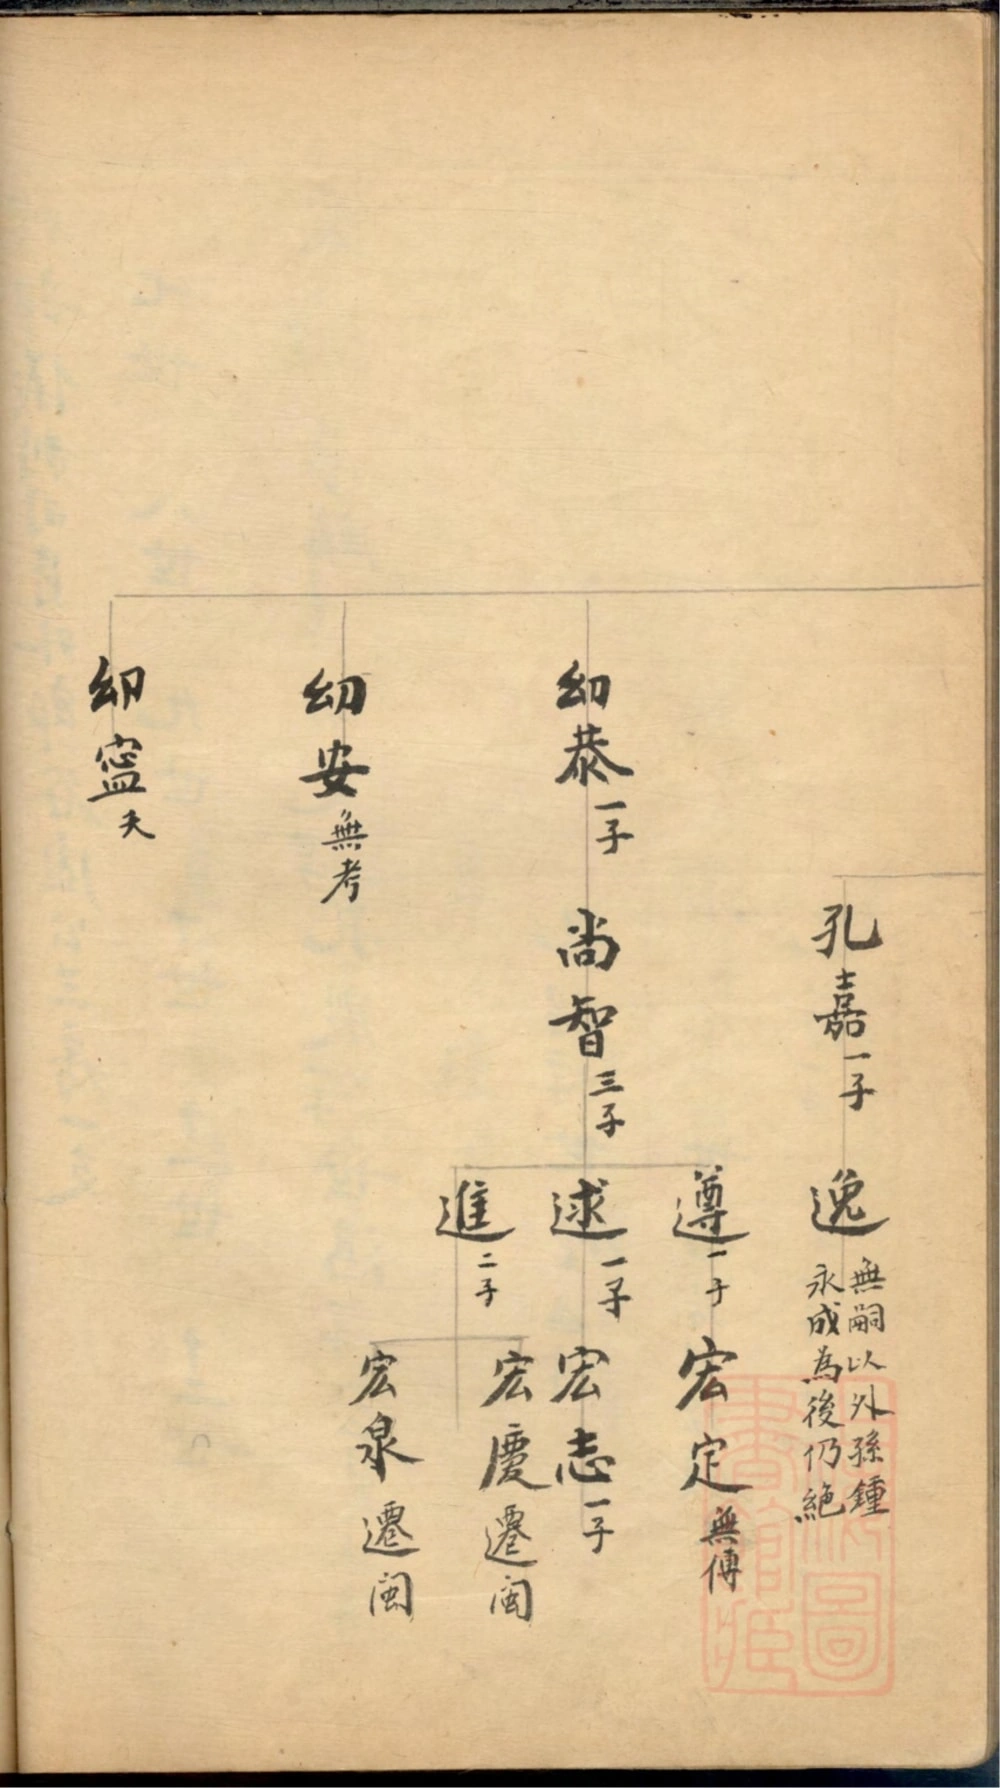 孔嘉一子
逸無嗣以外孫鍾
永成為後仍絶
幼恭一子
尚智三子
遵一子
宏定無傳
逑一子
宏志一子
進二子
宏慶遷閩
宏泉遷閩
幼安無考
幼寧夭